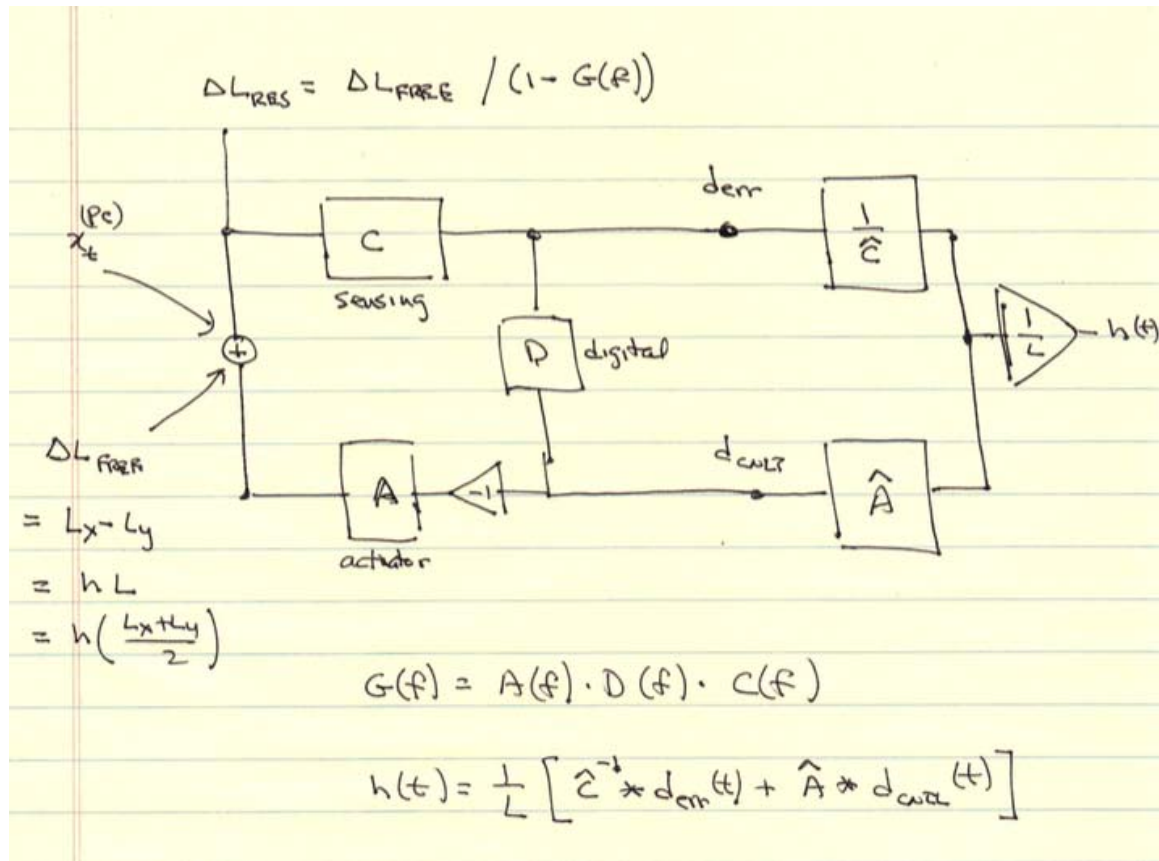 ΔL_RES = ΔL_FREE / (1 - G(f))
x_t^(PC)
C
sensing
d_err
1/Ĉ
D digital
1/L
h(t)
+
ΔL_FREE
= Lx - Ly
= hL
= h((Lx+Ly)/2)
A
actuator
-1
d_CNTL
Â
G(f) = A(f) · D(f) · C(f)
h(t) = 1/L [Ĉ^-1 * d_err(t) + Â * d_CNTL(t)]